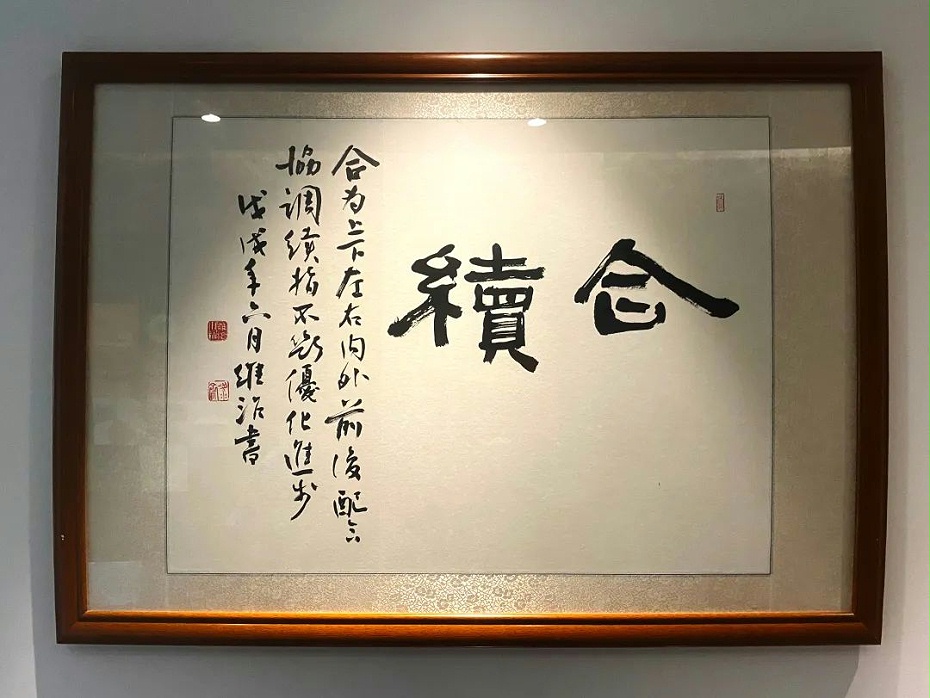 合續
合为上下左右内外前後配合
協調續指不斷優化進步
戊戌年六月維治書